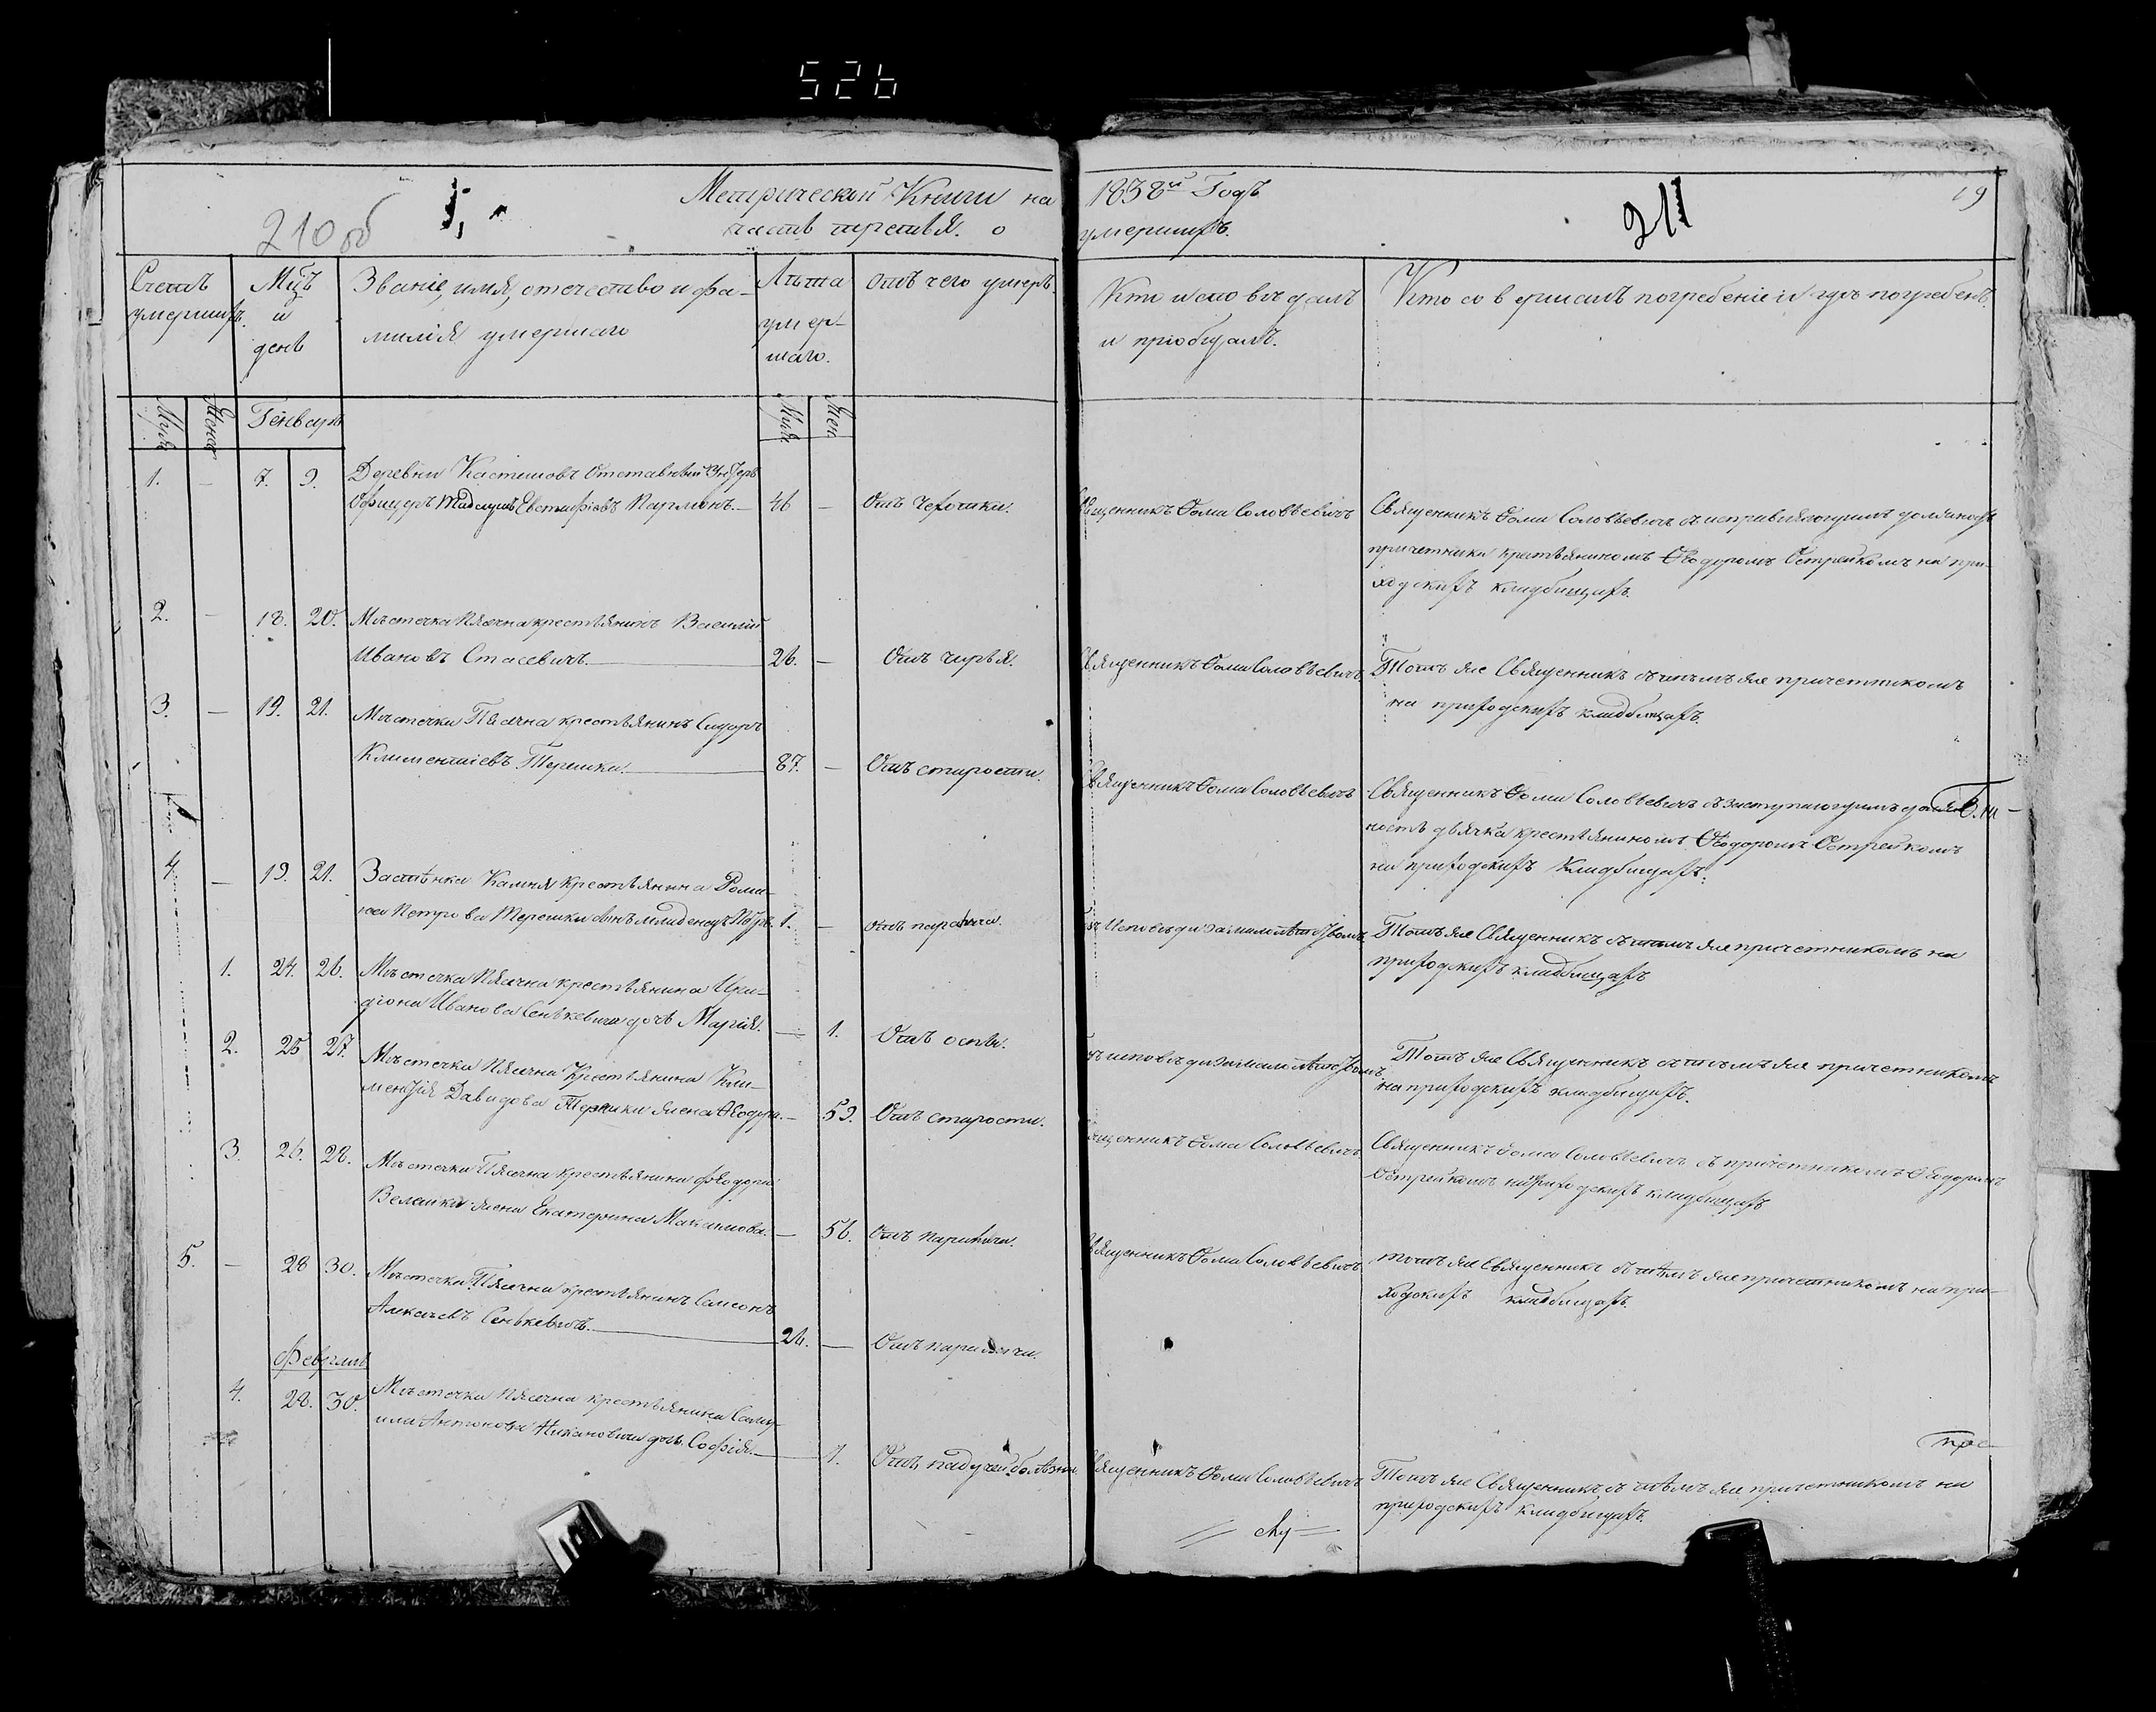 526
210 об
Метрической Книги на 1838й Годъ
часть третья. о умершихъ.
211
19
Счетъ умершихъ.
Мцъ и день
Званіе, имя, отечество и фамилія умершаго
Лѣта умершаго.
отъ чего умеръ.
Кто исповѣдалъ и пріобщалъ.
Кто совершалъ погребеніе и гдѣ погребенъ.
Муж
Жен
Генварь
Муж
Жен
1. — 7. 9. Деревни Отставный Унтеръ
Офицеръ Евстафіевъ — 46 — Отъ Чехотки.
Священникъ Фома Соловьевичъ
Священникъ Фома Соловьевичъ съ исправляющимъ должность
причетника крестьяниномъ Ѳеодоромъ Острейкомъ на при-
ходскихъ кладбищахъ.
2. — 18. 20. Мѣстечка Пясечна крестьянинъ Василий
Ивановъ Стасевичъ. — 26. — Отъ чирья.
Священникъ Фома Соловьевичъ.
Тотъ же Священникъ съ тѣмъ же причетникомъ
на приходскихъ кладбищахъ.
3. — 19. 21. Мѣстечка Пясечна крестьянинъ Сидоръ
Климентіевъ Терешка. — 87. — Отъ старости.
Священникъ Фома Соловьевичъ
Священникъ Фома Соловьевичъ съ заступающимъ долж-
ность дьячка крестьяниномъ Ѳеодоромъ Острейкомъ
на приходскихъ Кладбищахъ.
4. — 19. 21. Застѣнка Камня Крестьянина Рома-
на Петрова Терешки сынъ младенецъ — 1. — отъ паралича.
Безъ Исповѣди за малолѣтствомъ.
Тотъ же Священникъ съ тѣмъ же причетникомъ на
приходскихъ кладбищахъ
1. 24. 26. Мѣстечка Пясечна крестьянина Ири-
діона Иванова Сенькевича дочь Марія. — 1. Отъ оспы.
Безъ исповѣди за малолѣтствомъ.
Тотъ же Священникъ съ тѣмъ же причетникомъ
на приходскихъ кладбищахъ.
2. 25 27. Мѣстечка Пясечна Крестьянина Кли-
ментія Давидова Терешки жена Ѳеодора. — 59. Отъ старости.
Священникъ Фома Соловьевичъ
Священникъ Фома Соловьевичъ съ причетникомъ Ѳеодоромъ
Острейкомъ на приходскихъ кладбищахъ
3. 26. 28. Мѣстечка Пясечна крестьянина Ѳеодора
жена Екатерина Максимова. — 56. Отъ паралича.
Священникъ Фома Соловьевичъ
тотъ же Священникъ съ тѣмъ же причетникомъ на при-
ходскихъ кладбищахъ.
5. — 28 30. Мѣстечка Пясечна крестьянинъ Самсонъ
Алексіевъ Сенькевичъ. — 26. — Отъ паралича.
Февраль
4. 28. 30. Мѣстечка Пясечна крестьянина Саму-
ила Антонова дочь Софія. — 1. Отъ падучей болѣзни
Священникъ Фома Соловьевичъ
Тотъ же Священникъ съ тѣмъ же причетникомъ на
приходскихъ кладбищахъ.